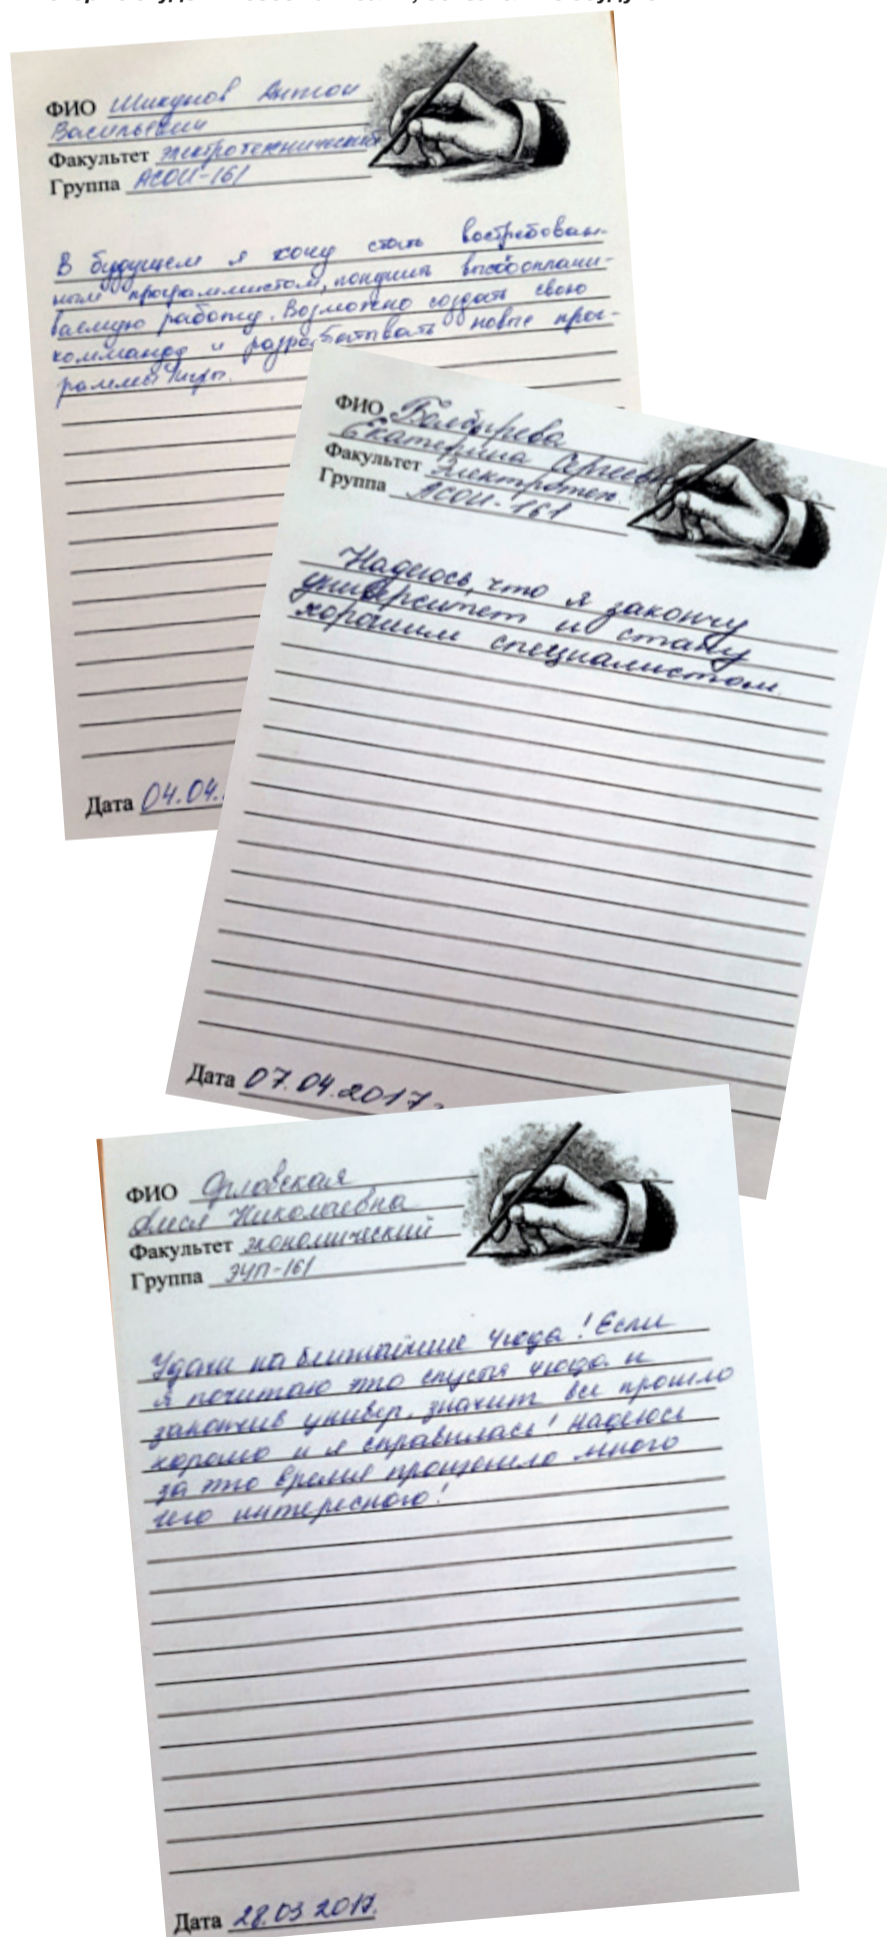 ФИО Шикунов Антон
Васильевич
Факультет электротехнический
Группа АСОИ-161
В будущем я хочу стать востребован-
ным программистом, получить высокооплачи-
ваемую работу. Возможно создать свою
комманду и разрабатывать новые прог-
раммы игры.
Дата 04.04.
ФИО Болбырева
Екатерина Сергеевна
Факультет Электротех.
Группа АСОИ-161
Надеюсь, что я закончу
университет и стану
хорошим специалистом.
Дата 07.04.2017
ФИО Орловская
Алеся Николаевна
Факультет экономический
Группа ЭУП-161
Удачи на ближайшие 4 года! Если
я почитаю это спустя 4 года и
закончив универ, значит все прошло
хорошо и я справилась! Надеюсь
за это время произошло много
чего интересного!
Дата 28.03 2017.